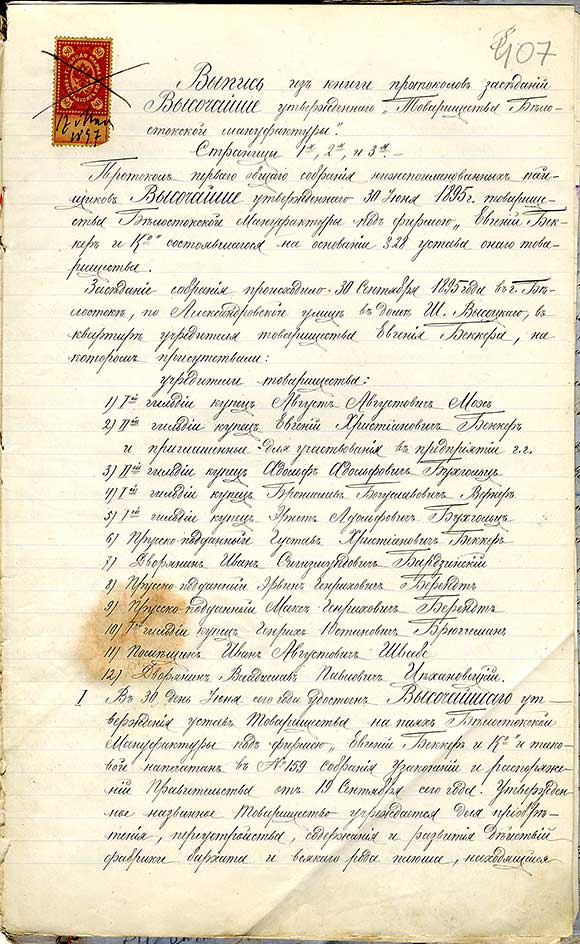 407
12 1897
Выпись изъ книги протоколовъ засѣданій
Высочайше утвержденнаго „Товарищества Бѣло-
стокской мануфактуры“.
Страницы 1я, 2я, и 3я.-
Протоколъ перваго общаго собранія нижепоименованныхъ пай-
щиковъ Высочайше утвержденнаго 30 Іюня 1895 г. товарище-
ства Бѣлостокской Мануфактуры подъ фирмою „Евгеній Бек-
керъ и Ко“ состоявшагося на основаніи § 28 устава онаго това-
рищества.
Засѣданіе собранія происходило 30 Сентября 1895 года въ г. Бѣ-
лостокѣ, по Александровской улицѣ въ домѣ Ш. Высоцкаго, въ
квартирѣ учредителя товарищества Евгенія Беккера, на
которомъ присутствовали:
учредители товарищества:
1) Iой гильдіи купецъ Августъ Августовичъ Моэсъ
2) IIой гильдіи купецъ Евгеній Христіановичъ Беккеръ
и приглашенные для участвованія въ предпріятіи г.г.
3) IIой гильдіи купецъ Адольфъ Адольфовичъ Бухгольцъ
4) Iой гильдіи купецъ Брониславъ Богуславовичъ Вернеръ
5) Iой гильдіи купецъ Эрнстъ Адольфовичъ Бухгольцъ
6) Прусско-подданный Густавъ Христіановичъ Беккеръ
7) Дворянинъ Иванъ Сигизмундовичъ
8) Прусско-подданный Эрвинъ Генриховичъ Берендтъ
9) Прусско-подданный Максъ Генриховичъ Берендтъ
10) Iой гильдіи купецъ Генрихъ Юстиновичъ
11) Иванъ Августовичъ Швабе
12) Дворянинъ Владиславъ Павловичъ Цѣхановецкій.
I Въ 30 день Іюня сего года удостоенъ Высочайшаго ут-
вержденія уставъ Товарищества на паяхъ Бѣлостокской
Мануфактуры подъ фирмою „Евгеній Беккеръ и Ко“ и тако-
вой напечатанъ въ № 159 собранія узаконеній и распоряже-
ній Правительства отъ 19 Сентября сего года. Утвержден-
ное названное Товарищество учреждается для пріобрѣ-
тенія, переустройства, содержанія и развитія дѣйствій
фабрики бархата и всякаго рода плюша, находящейся